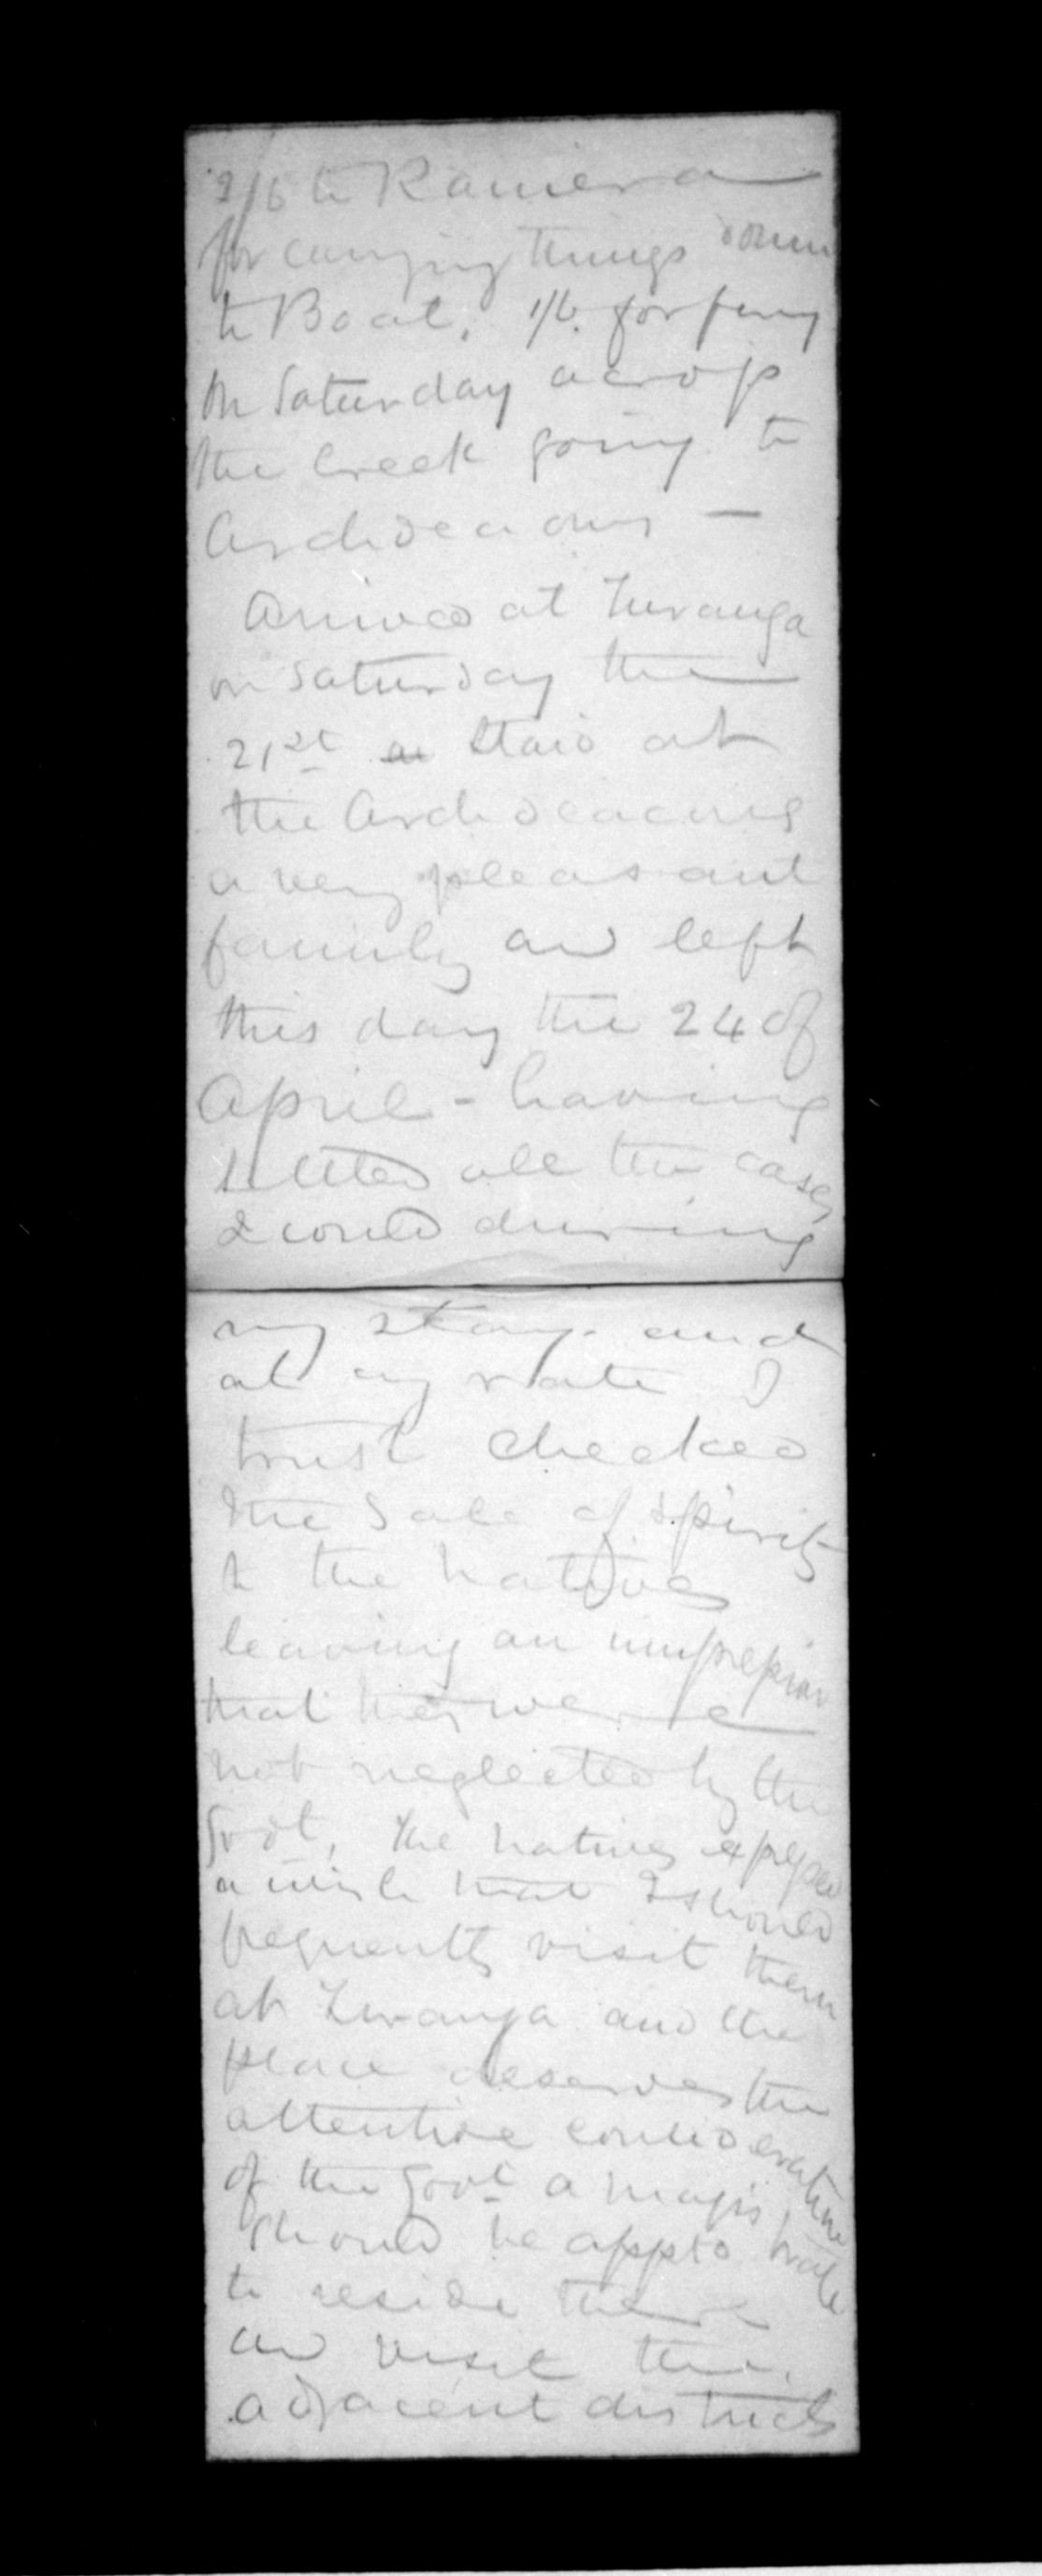 2/6 to Raniera
for carrying things down
to Boat. 1/6. for ferry
on Saturday across
the Creek going to
Archdeacons —
Arrived at Turanga
on Saturday the
21st a staid at
the Archdeacons
a very pleasant
family and left
this day the 24 of
April - having
settled all the cases
I could during
my stay. and
at any rate I
trust checked
the Sale of spirits
to the Natives
leaving an impression
that they were
not neglected by the
Govt, The natives expressed
a wish that I should
frequently visit them
at Turanga and the
place deserves the
attentive consideration
of the Govt a magistrate
should be apptd
to reside there
and visit the
adjacent districts